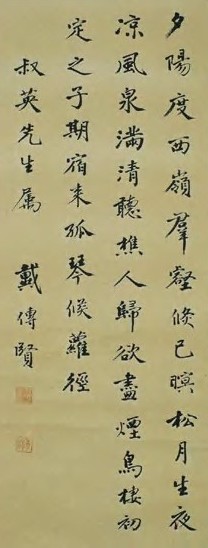 夕陽度西嶺羣壑倏已暝松月生夜
凉風泉滿清聽樵人歸欲盡煙鳥棲初
定之子期宿来孤琴候蘿徑
叔英先生属 戴傳賢